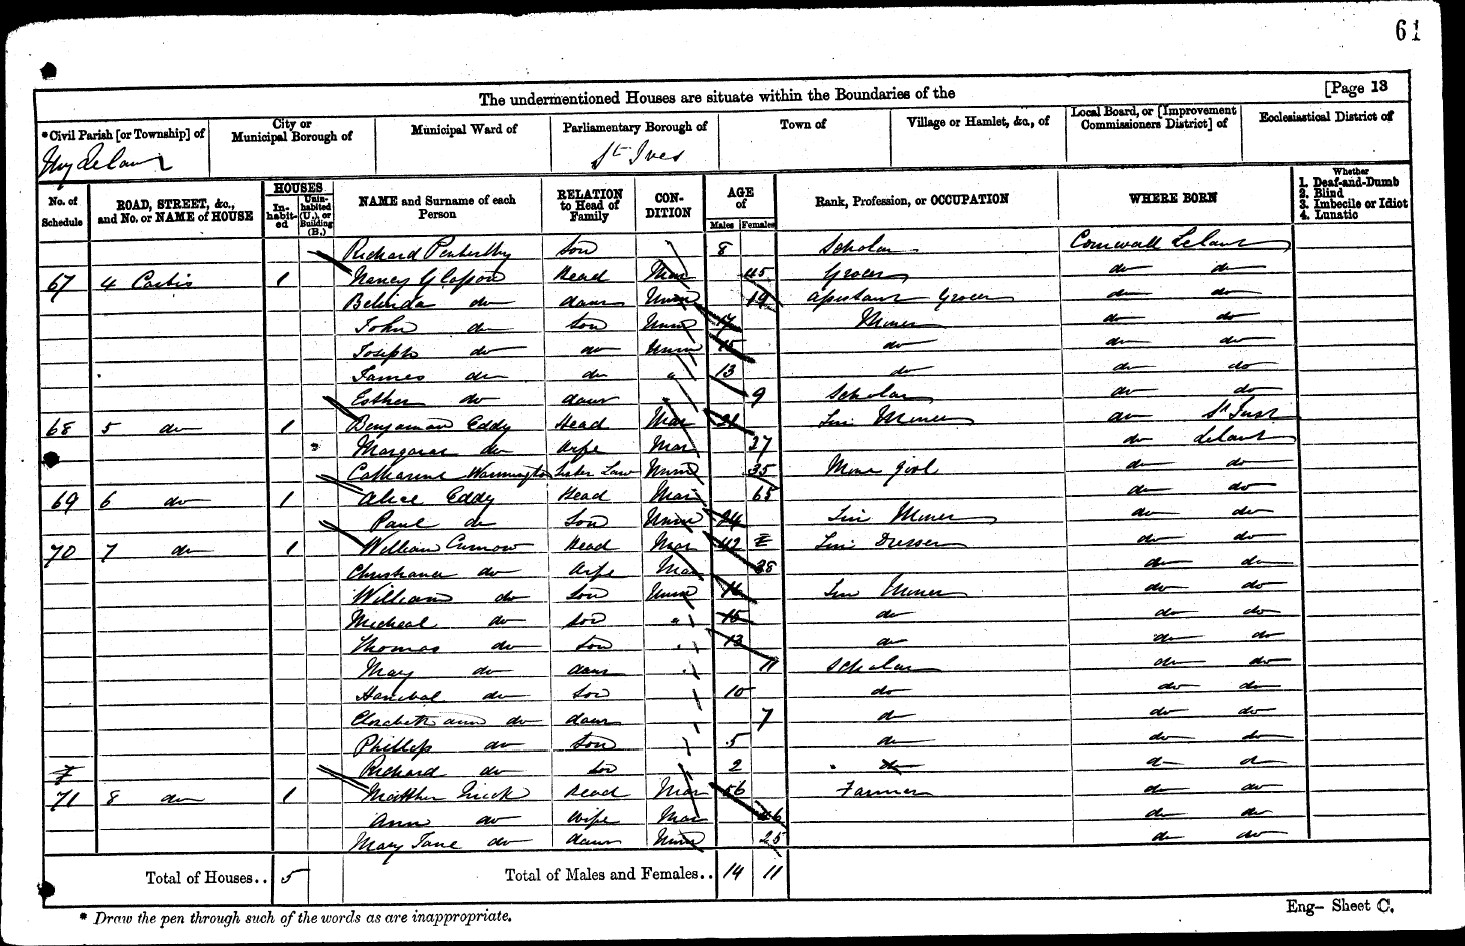 61
[Page 13
The undermentioned Houses are situate within the Boundaries of the
*Civil Parish [or Township] of
City or Municipal Borough of
Municipal Ward of
Parliamentary Borough of
Town of
Village or Hamlet, &c., of
Local Board, or [Improvement Commissioners District] of
Ecclesiastical District of
Uny Lelant
St Ives
No. of Schedule
ROAD, STREET, &c., and No. or NAME of HOUSE
HOUSES
In-habit-ed
Unin-habited (U.), or Building (B.)
NAME and Surname of each Person
RELATION to Head of Family
CON-DITION
AGE of
Males
Females
Rank, Profession, or OCCUPATION
WHERE BORN
Whether
1. Deaf-and-Dumb
2. Blind
3. Imbecile or Idiot
4. Lunatic
Richard Penberthy Son 8 Scholar Cornwall Lelant
67 4 Carbis 1 Nancy Glasson Head Mar 45 Grocer do do
Belinda do daur Unm 19 Assistant Grocer do do
John do Son Unm 17 Miner do do
Joseph do do Unm 15 do do do
James do do " 13 do do do
Esther do daur 9 Scholar do do
68 5 do 1 Benjaman Eddy Head Mar 21 Tin Miner do St Just
Margaret do Wife Mar 27 do Lelant
Catharine Warmington Sister Law Unm 35 Mine girl do do
69 6 do 1 Alice Eddy Head Mar 65 do do
Paul do Son Unm 24 Tin Miner do do
70 7 do 1 William Curnow Head Mar 42 Tin Dresser do do
Christiana do Wife Mar 38 do do
William do Son Unm 16 Tin Miner do do
Micheal do Son " 15 do do do
Thomas do Son " 13 do do do
Mary do daur " 11 Scholar do do
Hanibal do Son 10 do do do
Elizabeth ann do daur 7 do do do
Phillip do Son 5 do do do
Richard do Son 2 do do do
71 8 do 1 Matthew Trick Head Mar 56 Farmer do do
Ann do Wife Mar 46 do do
Mary Jane do daur Unm 25 do do
Total of Houses.. 5
Total of Males and Females.. 14 11
* Draw the pen through such of the words as are inappropriate.
Eng- Sheet C.